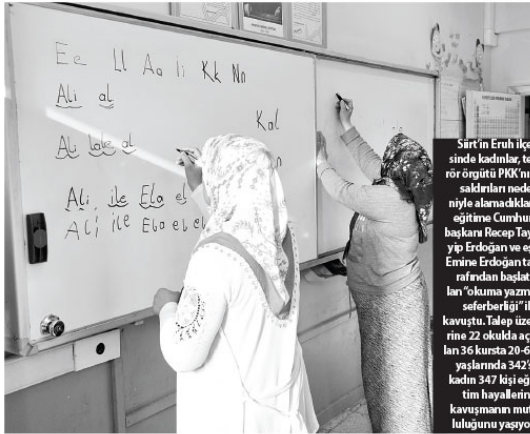 Ee Ll Aa İi Kk Nn
Ali al
Kal
Ali lale al
n
Ali, ile Ela el
Ali ile Ela el el
Siirt'in Eruh ilçe
sinde kadınlar, te
rör örgütü PKK'nı
saldırıları nede
niyle alamadıklar
eğitime Cumhu
başkanı Recep Tay
yip Erdoğan ve eş
Emine Erdoğan ta
rafından başlat
lan "okuma yazm
seferberliği" il
kavuştu. Talep üze
rine 22 okulda aç
lan 36 kursta 20-6
yaşlarında 342's
kadın 347 kişi eğ
tim hayallerin
kavuşmanın mut
luluğunu yaşıyo